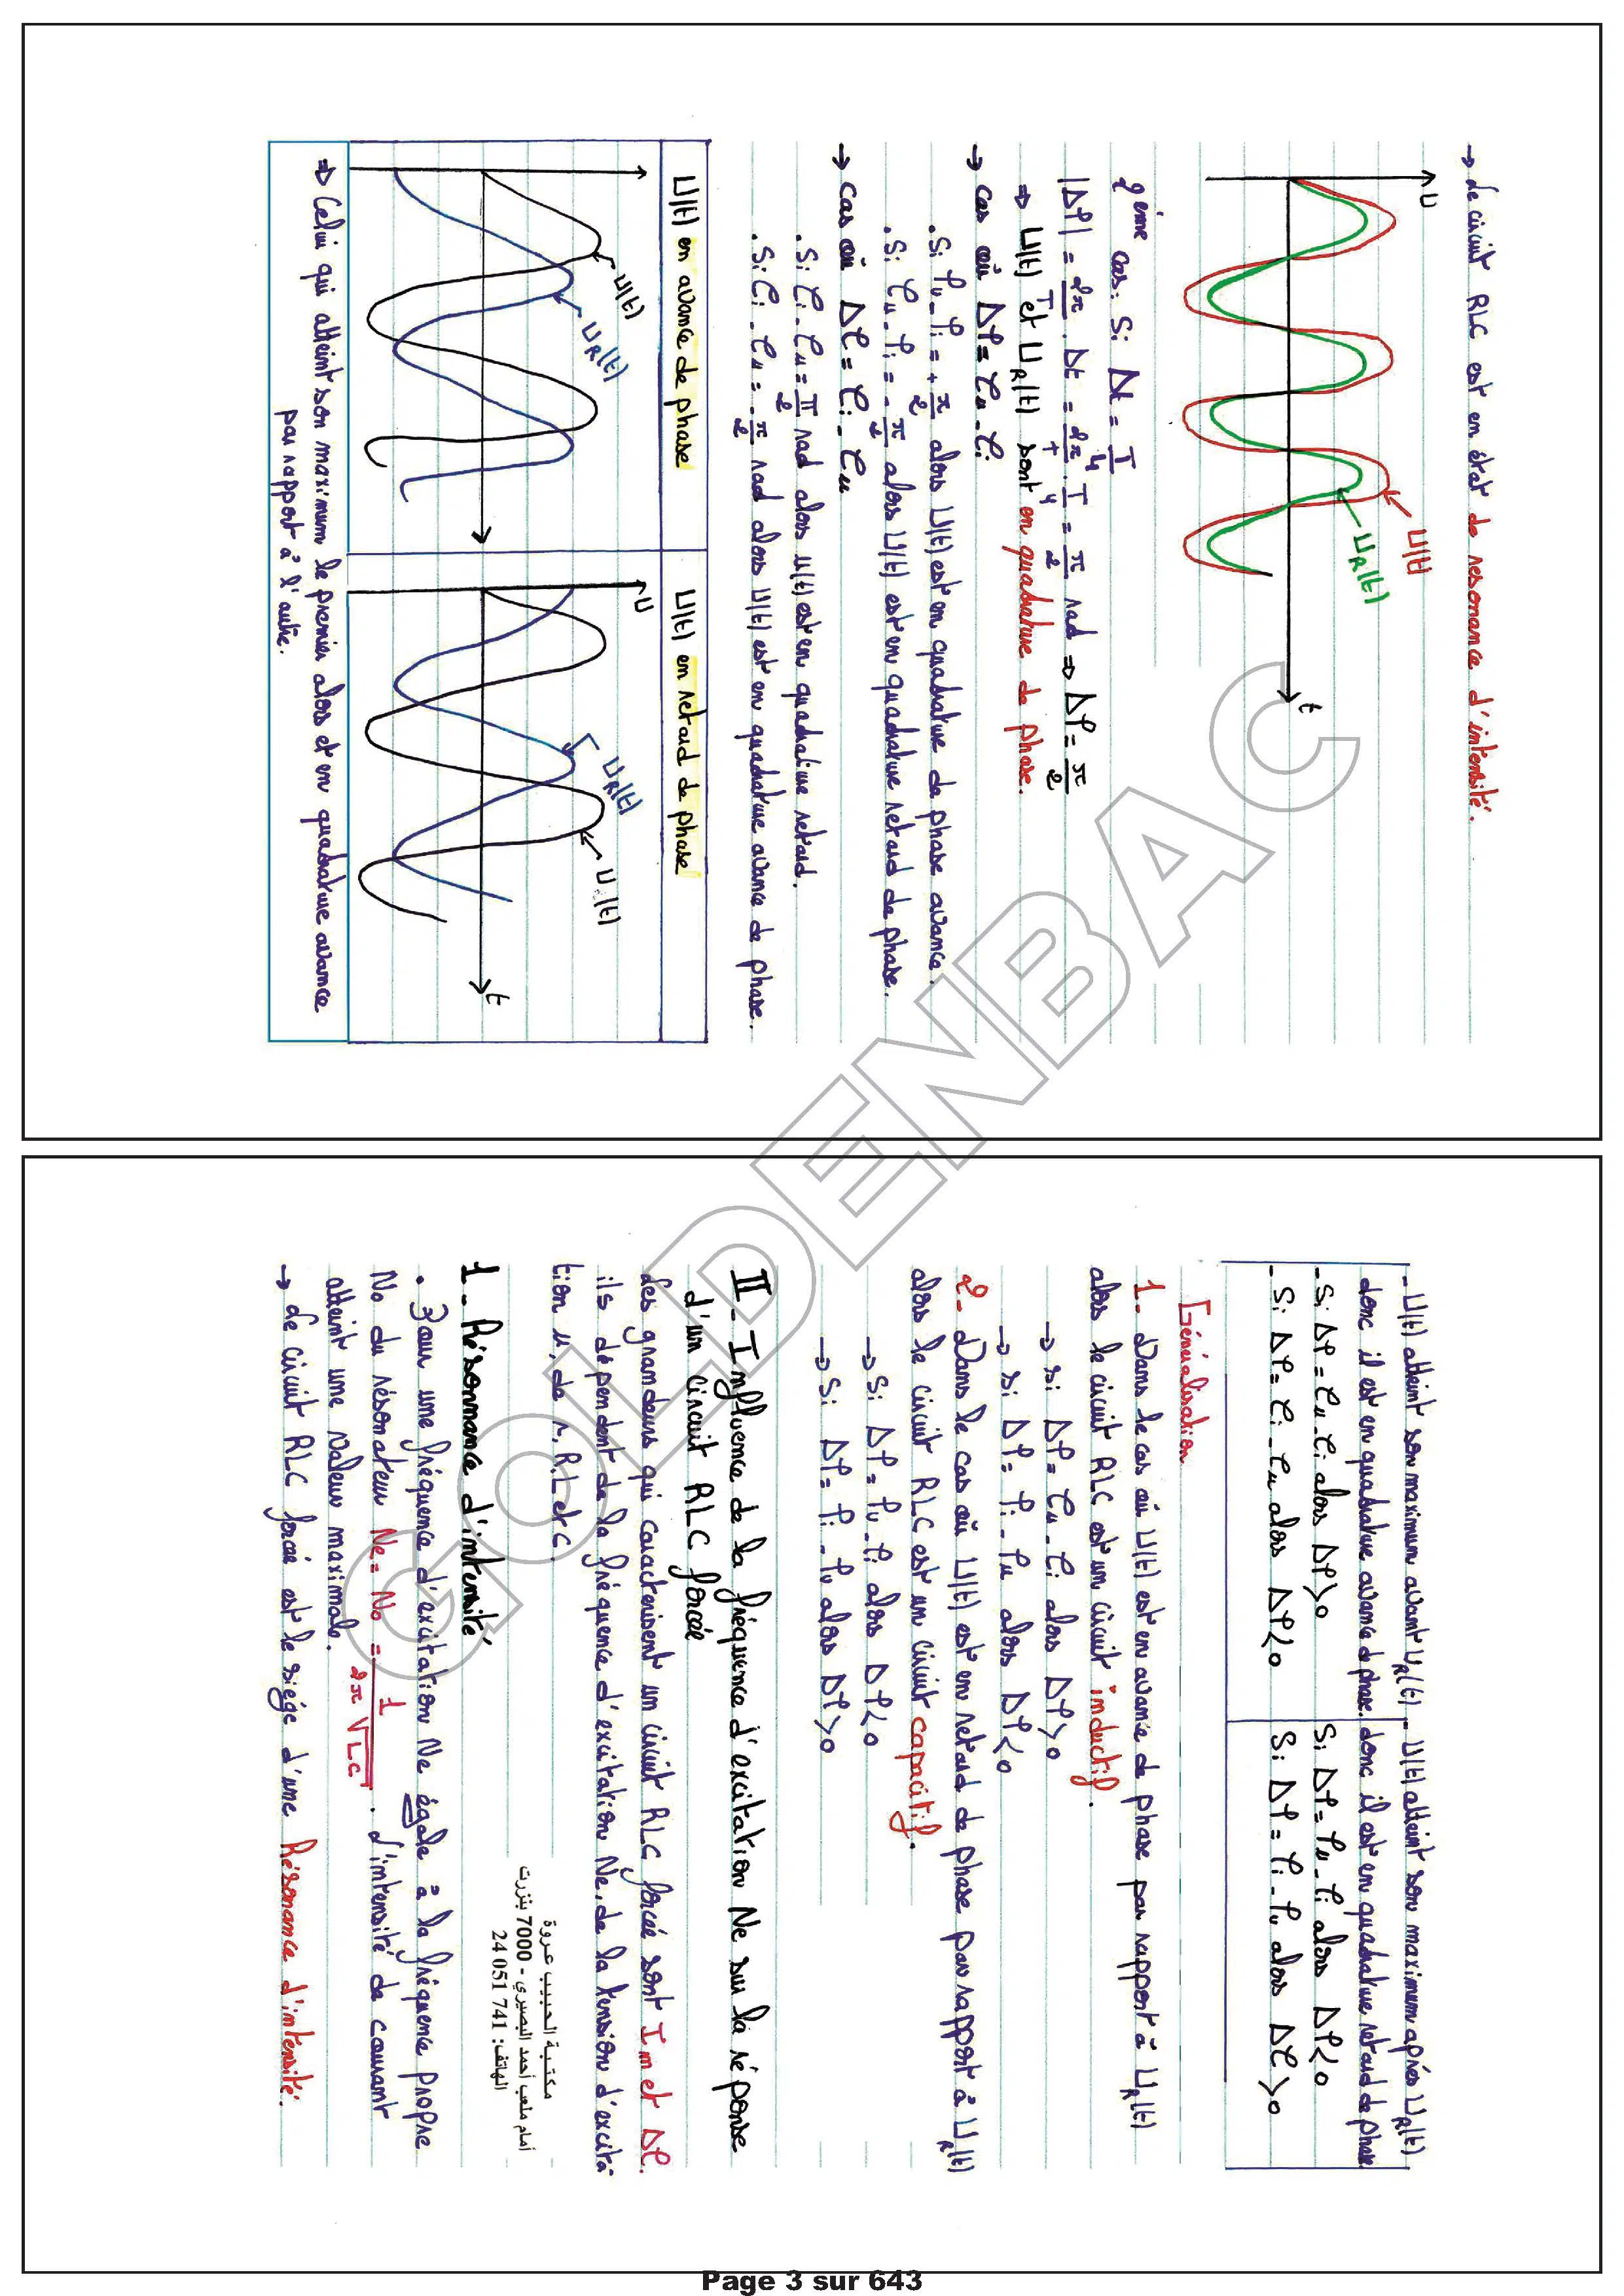 → Le circuit RLC est en état de resonance d'intensité.
U
U(t)
U_R(t)
t
2ème cas: Si Δt = T/4
|Δφ| = 2π/T . Δt = 2π/T . T/4 = π/2 rad ⇒ Δφ = π/2
⇒ U(t) et U_R(t) sont en quadrature de phase.
→ cas où Δφ = φu - φi
. Si φu - φi = + π/2 alors U(t) est en quadrature de phase avance.
. Si φu - φi = - π/2 alors U(t) est en quadrature retard de phase.
→ cas où Δφ = φi - φu
. Si φi - φu = π/2 rad alors u(t) est en quadrature retard.
. Si φi - φu = - π/2 rad alors U(t) est en quadrature avance de phase.
U(t) en avance de phase
U(t) en retard de phase
U(t)
U_R(t)
t
U
U_R(t)
U(t)
⇒ Celui qui atteint son maximum le premier alors et en quadrature avance
par rapport à l'autre.
- U(t) atteint son maximum avant U_R(t)
donc il est en quadrature avance de phase.
- Si Δφ = φu - φi alors Δφ > 0
- Si Δφ = φi - φu alors Δφ < 0
- U(t) atteint son maximum après U_R(t)
donc il est en quadrature retard de phase
Si Δφ = φu - φi alors Δφ < 0
Si Δφ = φi - φu alors Δφ > 0
Généralisation
1 - Dans le cas où U(t) est en avance de phase par rapport à U_R(t)
alors le circuit RLC est un circuit inductif.
→ si Δφ = φu - φi alors Δφ > 0
→ si Δφ = φi - φu alors Δφ < 0
2 - Dans le cas où U(t) est en retard de phase par rapport à U_R(t)
alors le circuit RLC est un circuit capacitif.
→ Si Δφ = φu - φi alors Δφ < 0
→ Si Δφ = φi - φu alors Δφ > 0
II - Influence de la fréquence d'excitation Ne sur la réponse
d'un circuit RLC forcée
des grandeurs qui caracterisent un circuit RLC forcée sont Im et Δφ.
ils dépendent de la fréquence d'excitation Ne, de la tension d'excita-
tion u, de r, R, L et C.
1 - Résonnance d'intensité
. Pour une fréquence d'excitation Ne égale à la fréquence propre
No du résonateur Ne = No = 1/(2π√LC) . L'intensité de courant
atteint une valeur maximale.
→ Le circuit RLC forcée est le siége d'une Résonance d'intensité.
مكتبة الحبيب عروة
أمام ملعب أحمد البصيري - 7000 بنزرت
الهاتف: 741 051 24
GOLDENBAC
Page 3 sur 643